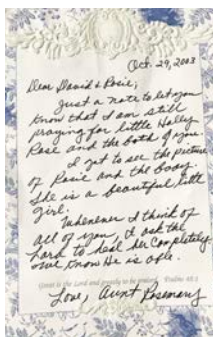 Oct. 29, 2003
Dear David & Rosie,
Just a note to let you
know that I am still
praying for little Hally
Rose and the both of you.
I got to see the picture
of Rosie and the baby.
She is a beautiful little
girl.
Whenever I think of
all of you, I ask the
Lord to heal her completely
and know He is able.
Great is the Lord and greatly to be praised. Psalm 48:1
Love, Aunt Rosemary